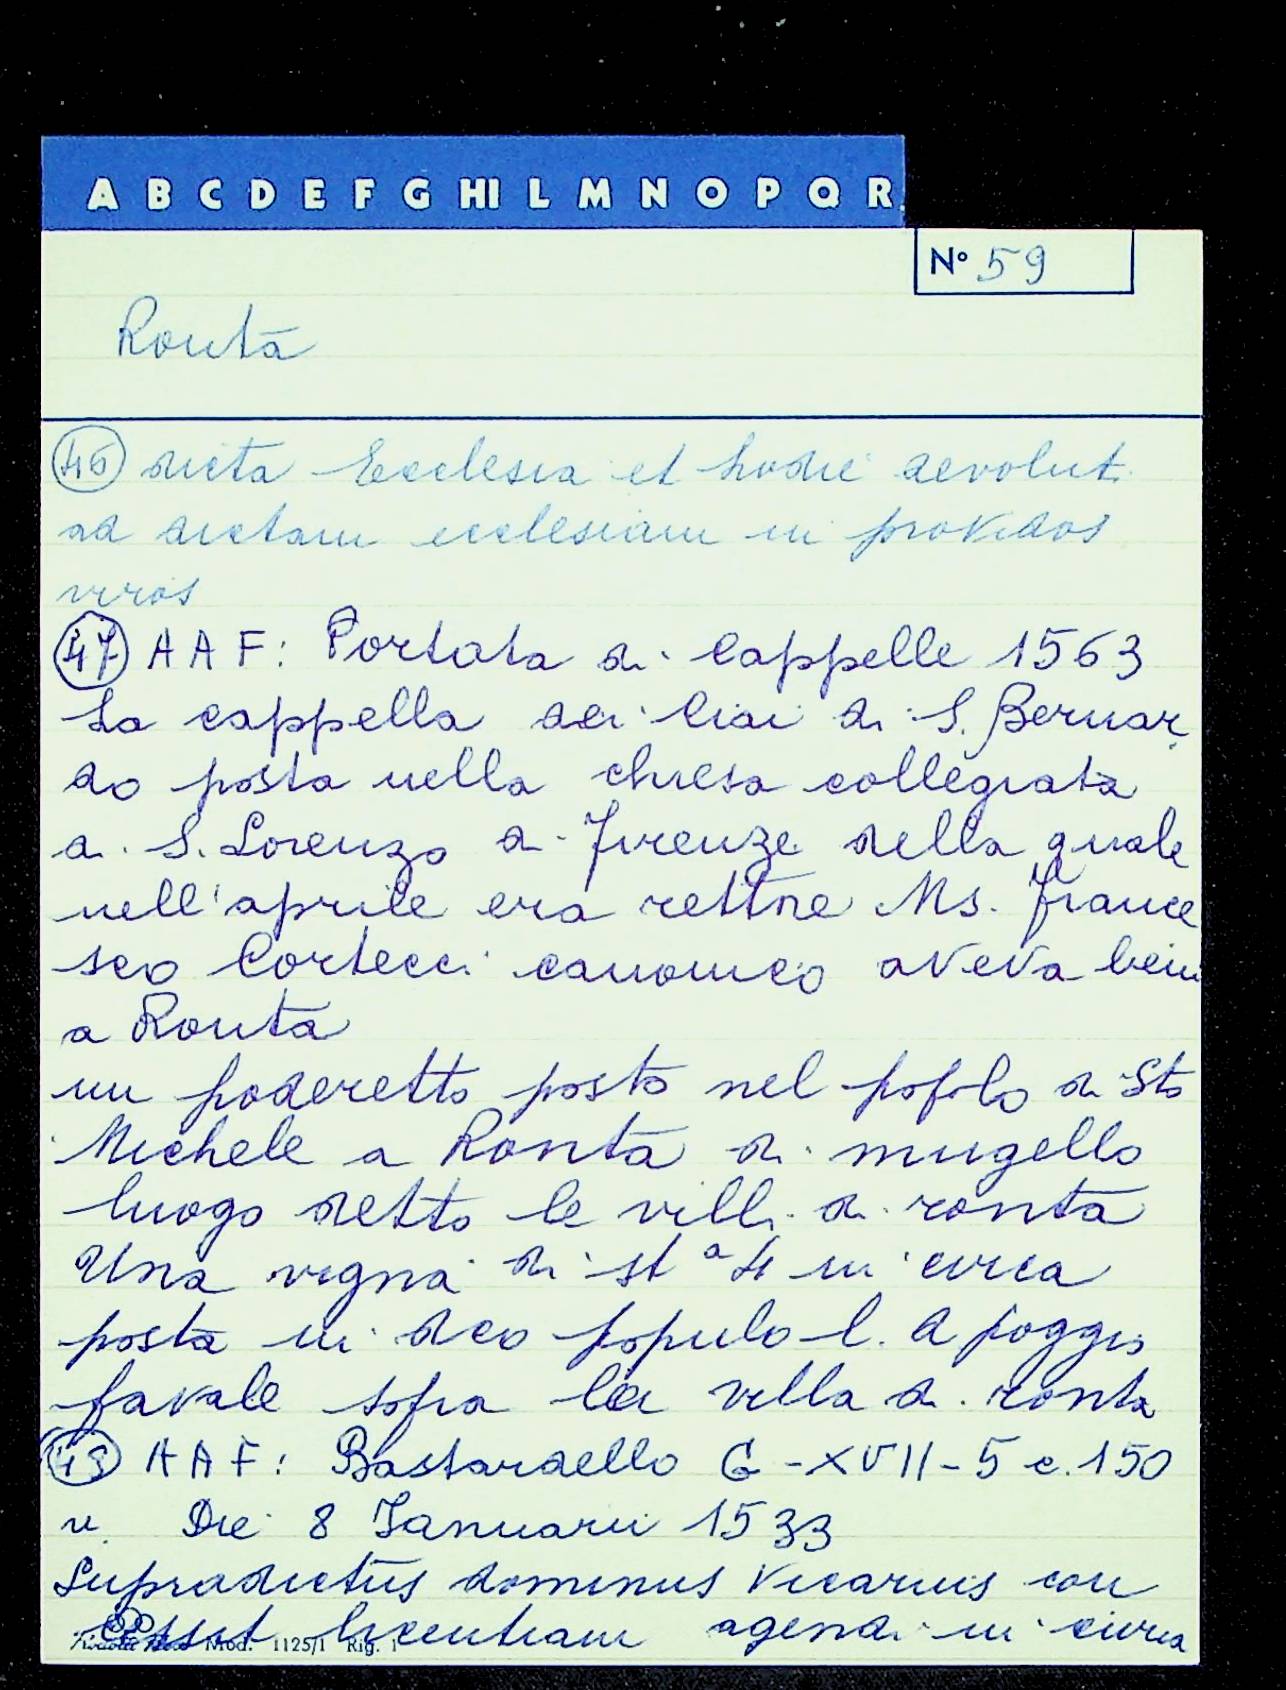 A B C D E F G HI L M N O P Q R
N° 59
Ronta
46 dicta Ecclesia et hodie devolut.
ad dictam ecclesiam in providos
viros
47 A A F: Portata di Cappelle 1563
La cappella dei Ciai di S. Bernar
do posta nella chiesa collegiata
di S. Lorenzo di Firenze della quale
nell'aprile era rettore Ms. France
sco Cortecci canonico aveva beni
a Ronta
un poderetto posto nel popolo di Sto
Michele a Ronta di mugello
luogo detto le vill. di ronta
Una vigna di st a 4 in circa
posta in dco populo l. d poggio
favale sopra la villa di ronta
48 A A F: Bastardello G-XVII-5 c. 150
v. Die 8 Januarii 1533
Supradictus dominus Vicarius con
cessit licentiam agendi in curia
Mod. 1125/1 Rig. 1